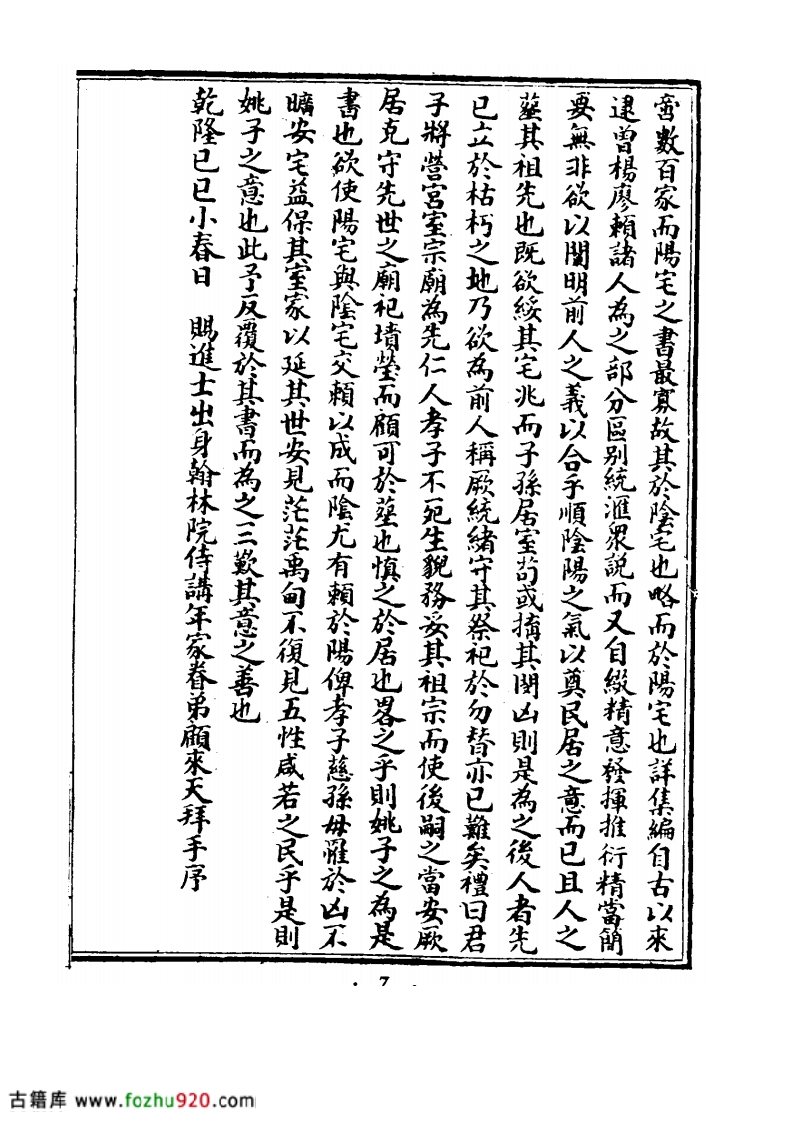 啻數百家而陽宅之書最寡故其於陰宅也略而於陽宅也詳集編自古以來
逮曾楊廖賴諸人為之部分區別統滙眾說而又自綴精意發揮推衍精當簡
要無非欲以闡明前人之義以合乎順陰陽之氣以奠民居之意而已且人之
塟其祖先也既欲綏其宅兆而子孫居室茍或搆其閔凶則是為之後人者先
已立於枯朽之地乃欲為前人稱厥統緒守其祭祀於勿替亦已難矣禮曰君
子將營宮室宗廟為先仁人孝子不死生貌務妥其祖宗而使後嗣之當安厥
居克守先世之廟祀墳塋而顧可於塟也慎之於居也畧之乎則姚子之為是
書也欲使陽宅與陰宅交賴以成而陰尤有賴於陽俾孝子慈孫毋罹於凶不
曠安宅益保其室家以延其世安見茫茫禹甸不復見五性咸若之民乎是則
姚子之意也此予反覆於其書而為之三歎其意之善也
乾隆已巳小春日 賜進士出身翰林院侍講年家眷弟顧來天拜手序
· 7 ·
古籍库 www.fozhu920.com